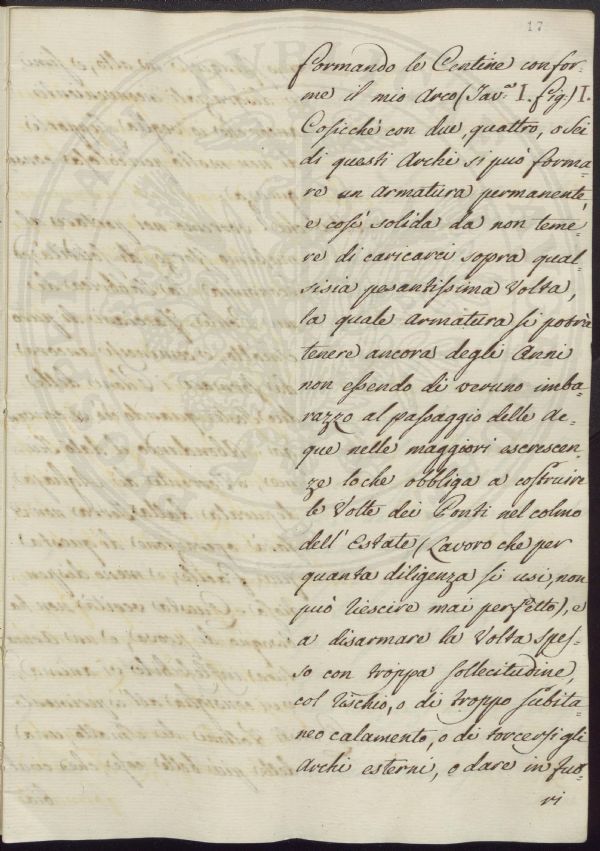 17
formando le Centine confor=
me il mio Arco (Tav.ª I. fig.) I.
Cosicchè con due, quattro, o Sei
di questi Archi si può forma=
re un armatura permanente,
e così solida da non teme=
re di caricarci sopra qual=
sisia pesantissima Volta,
la quale armatura si potrà
tenere ancora degli Anni
non essendo di veruno imba=
razzo al passaggio delle Ac=
que nelle maggiori escrescen=
ze loche obbliga a costruire
le Volte dei Ponti nel colmo
dell' Estate (Lavoro che per
quanta diligenza si usi, non
può riescire mai perfetto), e
a disarmare la Volta spes=
so con troppa sollecitudine,
col rischio, o di troppo subita=
neo calamento, o di torcersi gli
Archi esterni, o dare in fuo=
ri